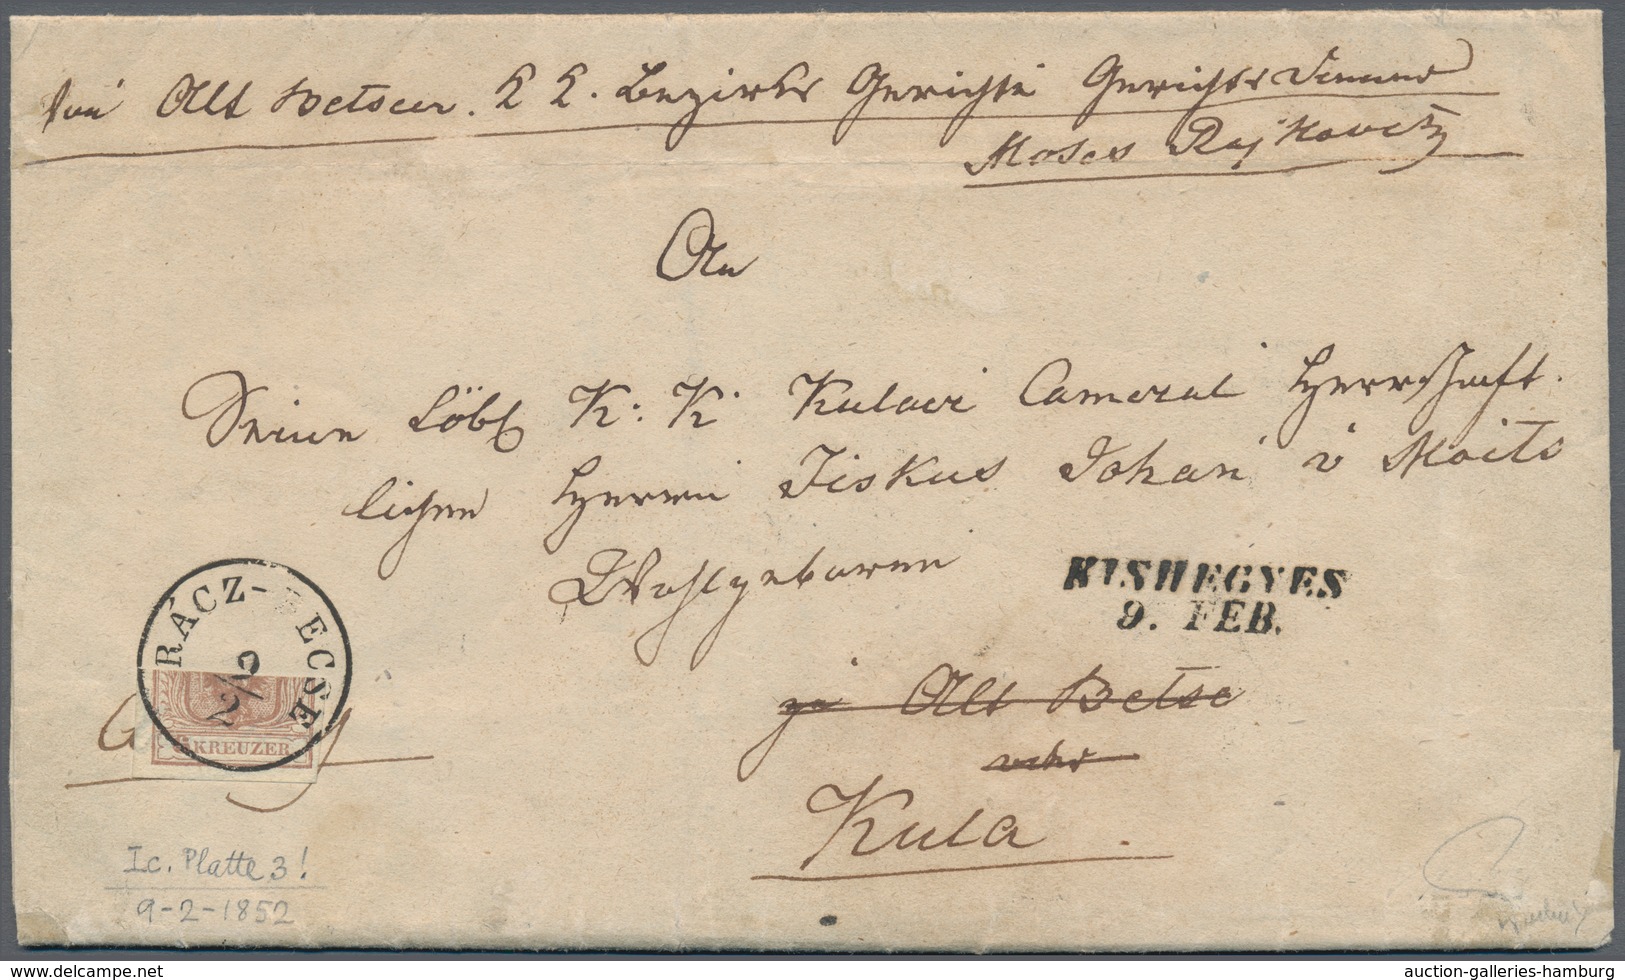 Alt Betseer. K K. Bezirks Gerichte Gerichts
Moses Rajkovits
An
Seine Löbl K: K: Kulaer Cameral Herrschaft.
lichen Herrn Fiskus Johan v Moits
Wohlgeboren
KISHEGYES
9. FEB.
RÁCZ-BECSE
9/2
6 KREUZER
zu Alt Betse
Kula
Ic. Platte 3!
9-2-1852
delcampe.net
auction-galleries-hamburg